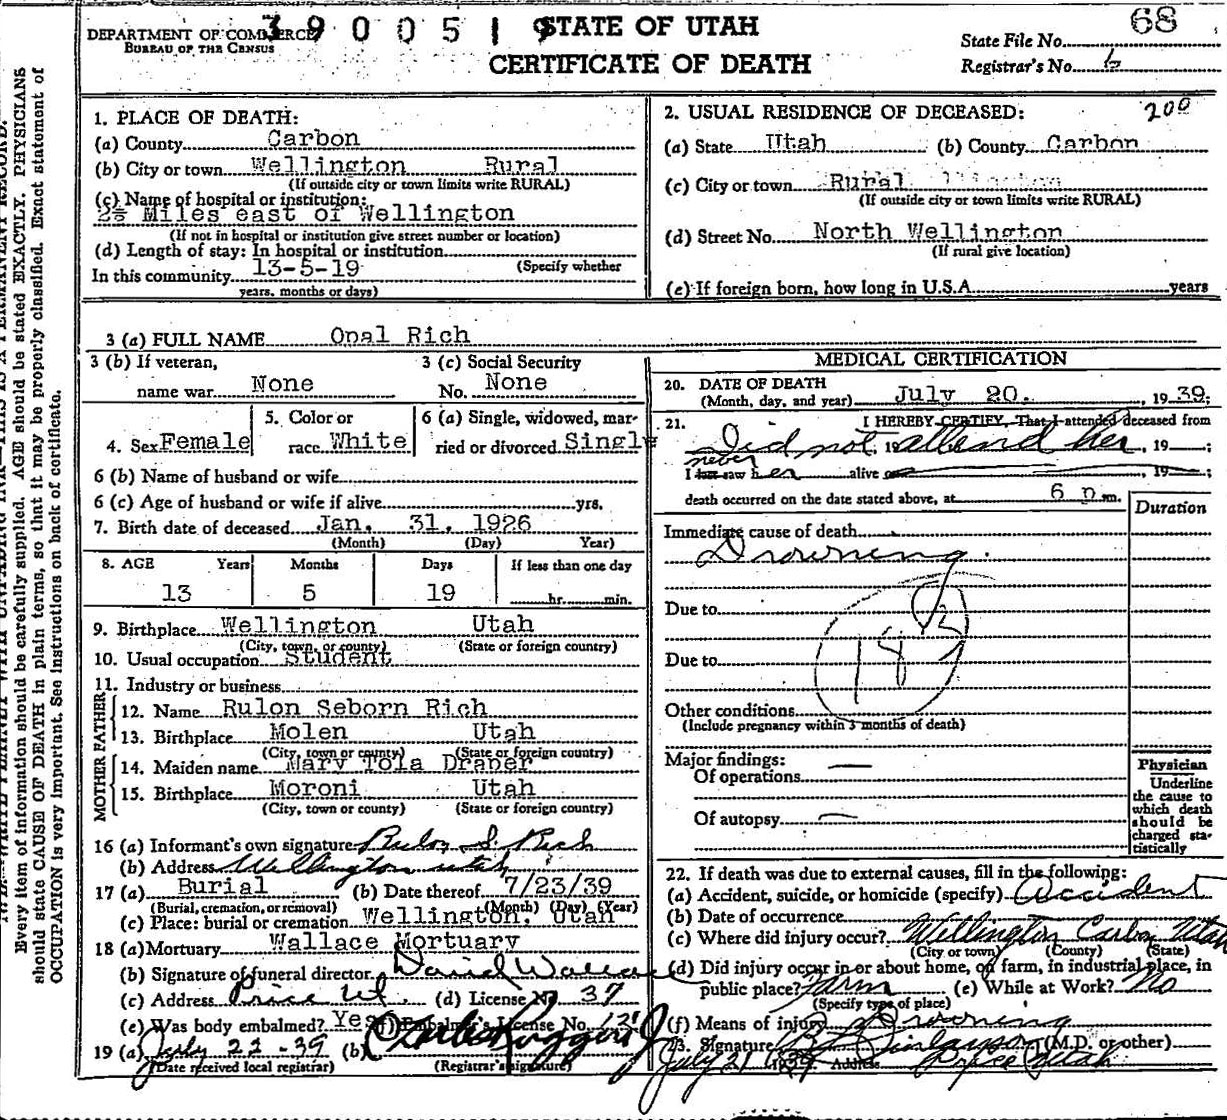 3900519
DEPARTMENT OF COMMERCE
BUREAU OF THE CENSUS
STATE OF UTAH
CERTIFICATE OF DEATH
State File No. 68
Registrar's No. 6
Every item of information should be carefully supplied. AGE should be stated EXACTLY. PHYSICIANS
should state CAUSE OF DEATH in plain terms, so that it may be properly classified. Exact statement of
OCCUPATION is very important. See instructions on back of certificate.
1. PLACE OF DEATH:
(a) County Carbon
(b) City or town Wellington Rural
(If outside city or town limits write RURAL)
(c) Name of hospital or institution:
2½ Miles east of Wellington
(If not in hospital or institution give street number or location)
(d) Length of stay: In hospital or institution
(Specify whether
In this community 13-5-19
years, months or days)
2. USUAL RESIDENCE OF DECEASED: 200
(a) State Utah (b) County Carbon
(c) City or town Rural
(If outside city or town limits write RURAL)
(d) Street No. North Wellington
(If rural give location)
(e) If foreign born, how long in U.S.A. years
3 (a) FULL NAME Opal Rich
3 (b) If veteran,
name war None
3 (c) Social Security
No. None
4. Sex Female
5. Color or
race White
6 (a) Single, widowed, mar-
ried or divorced Single
6 (b) Name of husband or wife
6 (c) Age of husband or wife if alive yrs.
7. Birth date of deceased Jan. 31, 1926
(Month) (Day) Year)
8. AGE Years Months Days If less than one day
13 5 19 hr. min.
9. Birthplace Wellington Utah
(City, town, or county) (State or foreign country)
10. Usual occupation Student
11. Industry or business
FATHER
12. Name Rulon Seborn Rich
13. Birthplace Molen Utah
(City, town or county) (State or foreign country)
MOTHER
14. Maiden name Mary Iola Draper
15. Birthplace Moroni Utah
(City, town or county) (State or foreign country)
16 (a) Informant's own signature Rulon S. Rich
(b) Address Wellington utah
17 (a) Burial (b) Date thereof 7/23/39
(Burial, cremation, or removal) (Month) (Day) (Year)
(c) Place: burial or cremation Wellington, Utah
18 (a) Mortuary Wallace Mortuary
(b) Signature of funeral director David Wallace
(c) Address Price Ut. (d) License No. 37
(e) Was body embalmed? Yes (f) Embalmer's License No.
19 (a) July 22-39 (b)
(Date received local registrar) (Registrar's signature)
MEDICAL CERTIFICATION
20. DATE OF DEATH
(Month, day, and year) July 20, 1939;
21. I HEREBY CERTIFY, That I attended deceased from
Did not, 19 attend her, 19 ;
never
I last saw her alive on , 19 ;
death occurred on the date stated above, at 6 p.m.
Duration
Immediate cause of death
Drowning.
Due to
183
Due to
Other conditions
(Include pregnancy within 3 months of death)
Major findings:
Of operations —
Of autopsy —
Physician
Underline
the cause to
which death
should be
charged sta-
tistically
22. If death was due to external causes, fill in the following:
(a) Accident, suicide, or homicide (specify) Accident
(b) Date of occurrence
(c) Where did injury occur? Wellington Carbon Utah
(City or town) (County) (State)
(d) Did injury occur in or about home, on farm, in industrial place, in
public place? Farm (e) While at Work? No
(Specify type of place)
(f) Means of injury Drowning
23. Signature (M.D. or other)
July 21 1939 Address Price Utah